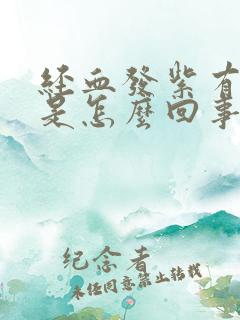 經血發紫有
是怎麼回事
纪念者
未经同意禁止转载